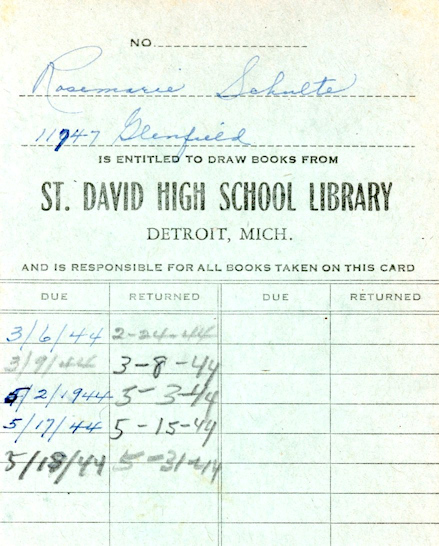 NO.
Rosemarie Schulte
11947 Glenfield
IS ENTITLED TO DRAW BOOKS FROM
ST. DAVID HIGH SCHOOL LIBRARY
DETROIT, MICH.
AND IS RESPONSIBLE FOR ALL BOOKS TAKEN ON THIS CARD
DUE RETURNED DUE RETURNED
3/6/44 2-24-44
3/9/44 3-8-44
5/2/1944 5-3-44
5/17/44 5-15-44
5/18/44 5-31-44